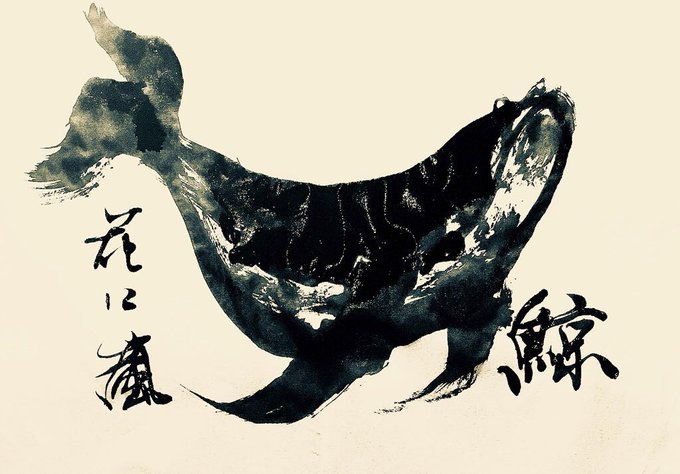 花に嵐
鯨